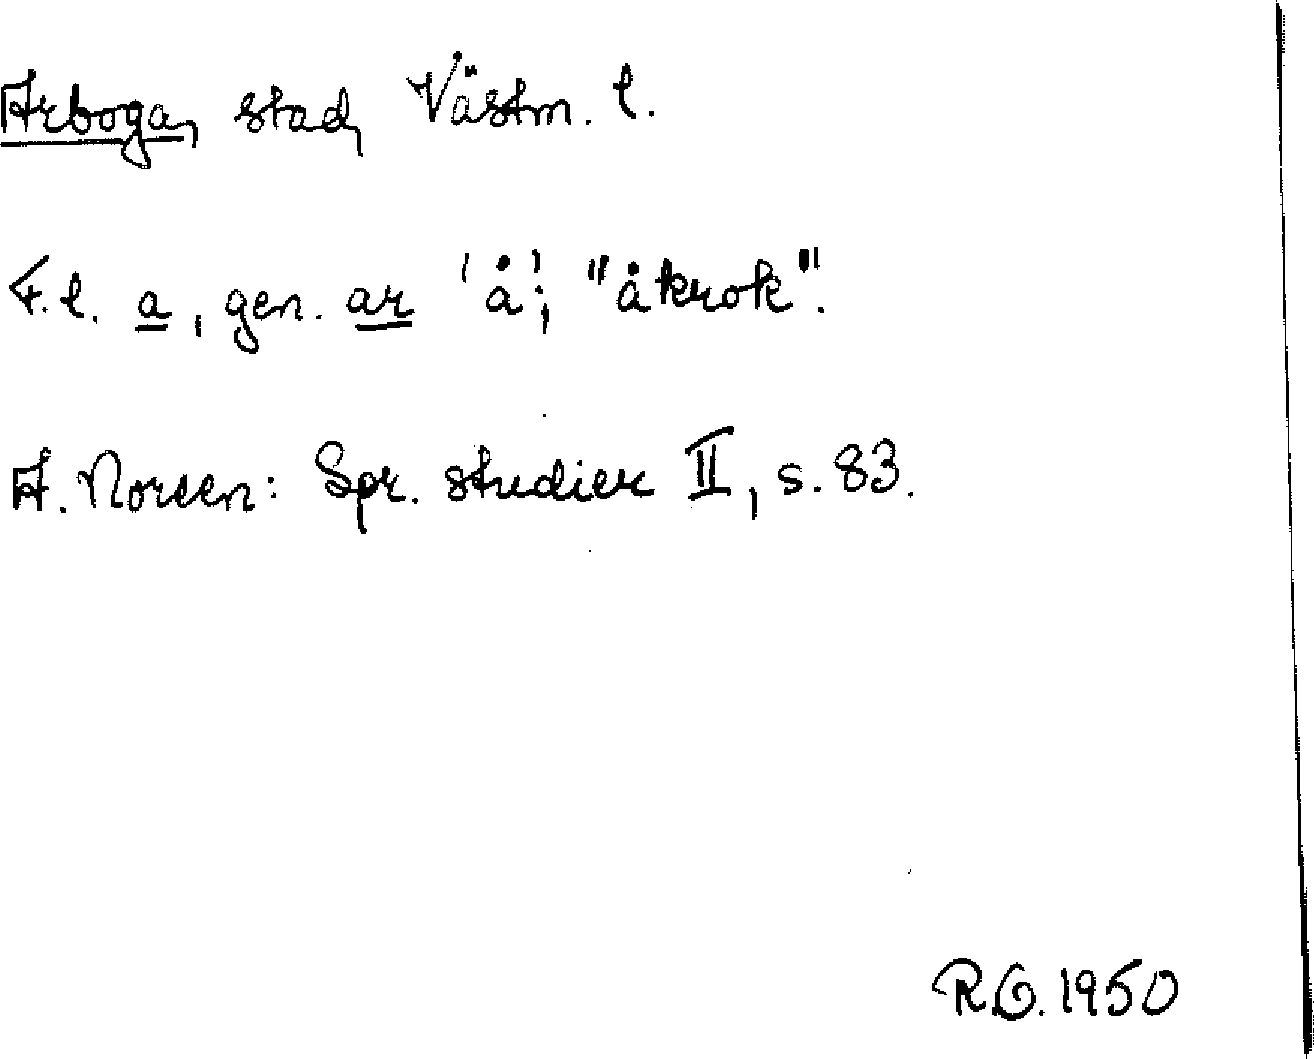 Arboga, stad, Västm. l.
F. l. a, gen. ar 'å'; "åkrok".
A. Noreen: Spr. studier II, s. 83.
R.G. 1950